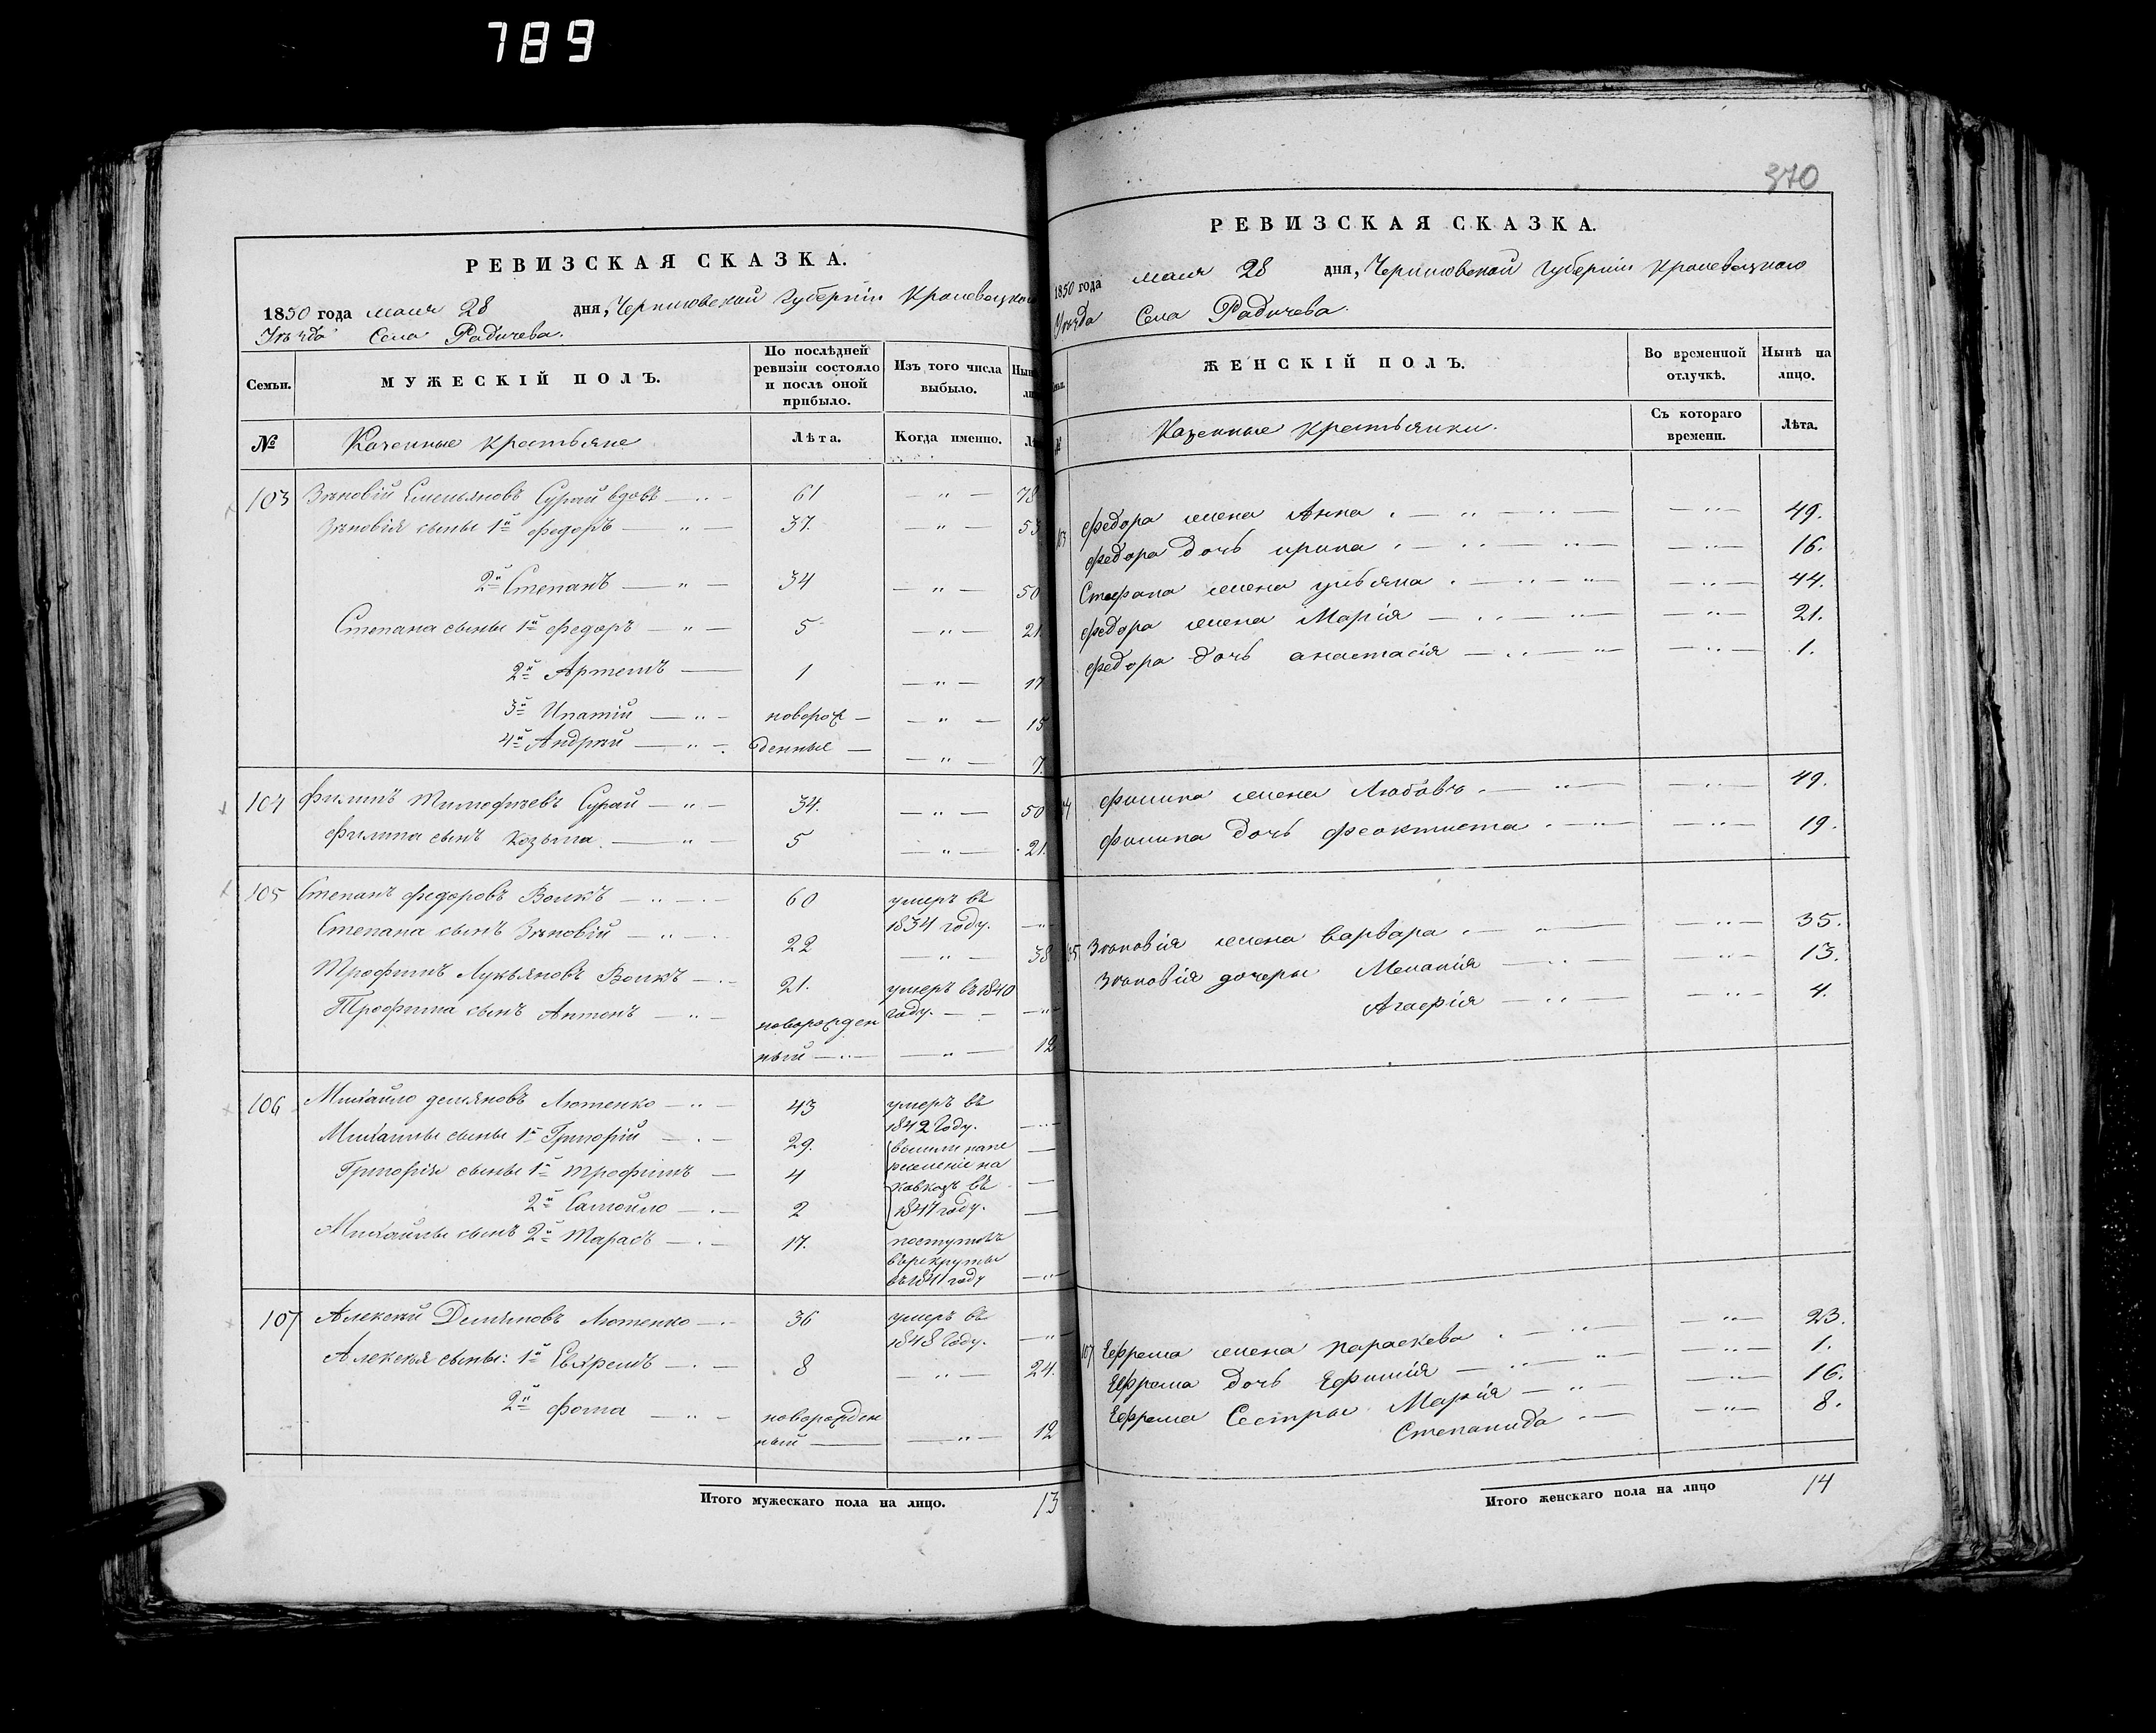 789
РЕВИЗСКАЯ СКАЗКА.
1850 года мая 28 дня, Черниговской Губерніи Кролевецкаго
Уѣзда Села Радичева.
Семьи. МУЖЕСКІЙ ПОЛЪ. По послѣдней ревизіи состояло и послѣ оной прибыло. Изъ того числа выбыло.
№ Казенные крестьяне Лѣта. Когда именно.
103 Зѣновій Емельяновъ Сурай вдовъ — " — 61 — " — 78
Зѣновія сыны 1й Федоръ — " — 37. — " — 53
2й Степанъ — " — 34 — " — 50
Степана сыны 1й Федоръ — " — 5 — " — 21.
2й Артемъ — 1 — " — 17
3й Ипатій — " — новорож — — " — 15
4й Андрей — " — денные — — " — 7.
104 Филипъ Тимофѣевъ Сурай — " — 34. — " — 50
Филипа сынъ Козьма. — " — 5 — " — 21.
105 Степанъ Федоровъ Волкъ — " — 60 умеръ въ
1834 году. — " —
Степана сынъ Зѣновій — " — 22 — " — 38
Трофимъ Лукьяновъ Волкъ — " — 21. умеръ въ 1840
Трофима сынъ Антонъ — " — новорожден году. — — — " —
ный — " — — " — 12
106 Михайло демяновъ Лютенко — " — 43 умеръ въ
1842 Году. — " —
Михайлы сыны 1й Григорій — " — 29. вышли на пе
Григорія сыны 1й Трофимъ — 4 реселеніе на
кавказъ въ
2й Самойло — " — 2 1847 году.
Михайлы сынъ 2й Тарасъ — " — 17. поступилъ
въ рекруты
въ 1841 году — " —
107 Алексѣй Демяновъ Лютенко — " — 36 умеръ въ
1848 Году. — " —
Алексѣя сыны: 1й Евхремъ — " — 8 — " — 24.
2й Фома — " — новорожден
ный — — " — 12
Итого мужескаго пола на лицо. 13
370
РЕВИЗСКАЯ СКАЗКА.
1850 года мая 28 дня, Черниговской Губерніи Кролевецкаго
Уѣзда Села Радичева.
ЖЕНСКІЙ ПОЛЪ. Во временной отлучкѣ. Нынѣ на лицо.
Казенные крестьянки. Съ котораго времени. Лѣта.
103 Федора жена Анна . — " — " — — " — 49.
Федора дочь ирина . — " — " — — " — 16.
Стефана жена ульяна . — " — " — — " — 44.
Федора жена Марія — " — " — — " — 21.
Федора дочь анастасія — " — " — — " — 1.
Филипа жена Любовь . — " — — " — 49.
Филипа дочь Феоктиста . — " — — " — 19.
Зѣновія жена варвара . — " — — " — 35.
Зѣновія дочери Меланія — " — — " — 13.
Агафія — " — — " — 4.
107 Ефрема жена параскева . — " — — " — 23.
Ефрема дочь Ефимія — " — " — — " — 1.
Ефрема Сестры Марія — " — — " — 16.
Степанида . — — " — 8.
Итого женскаго пола на лицо 14